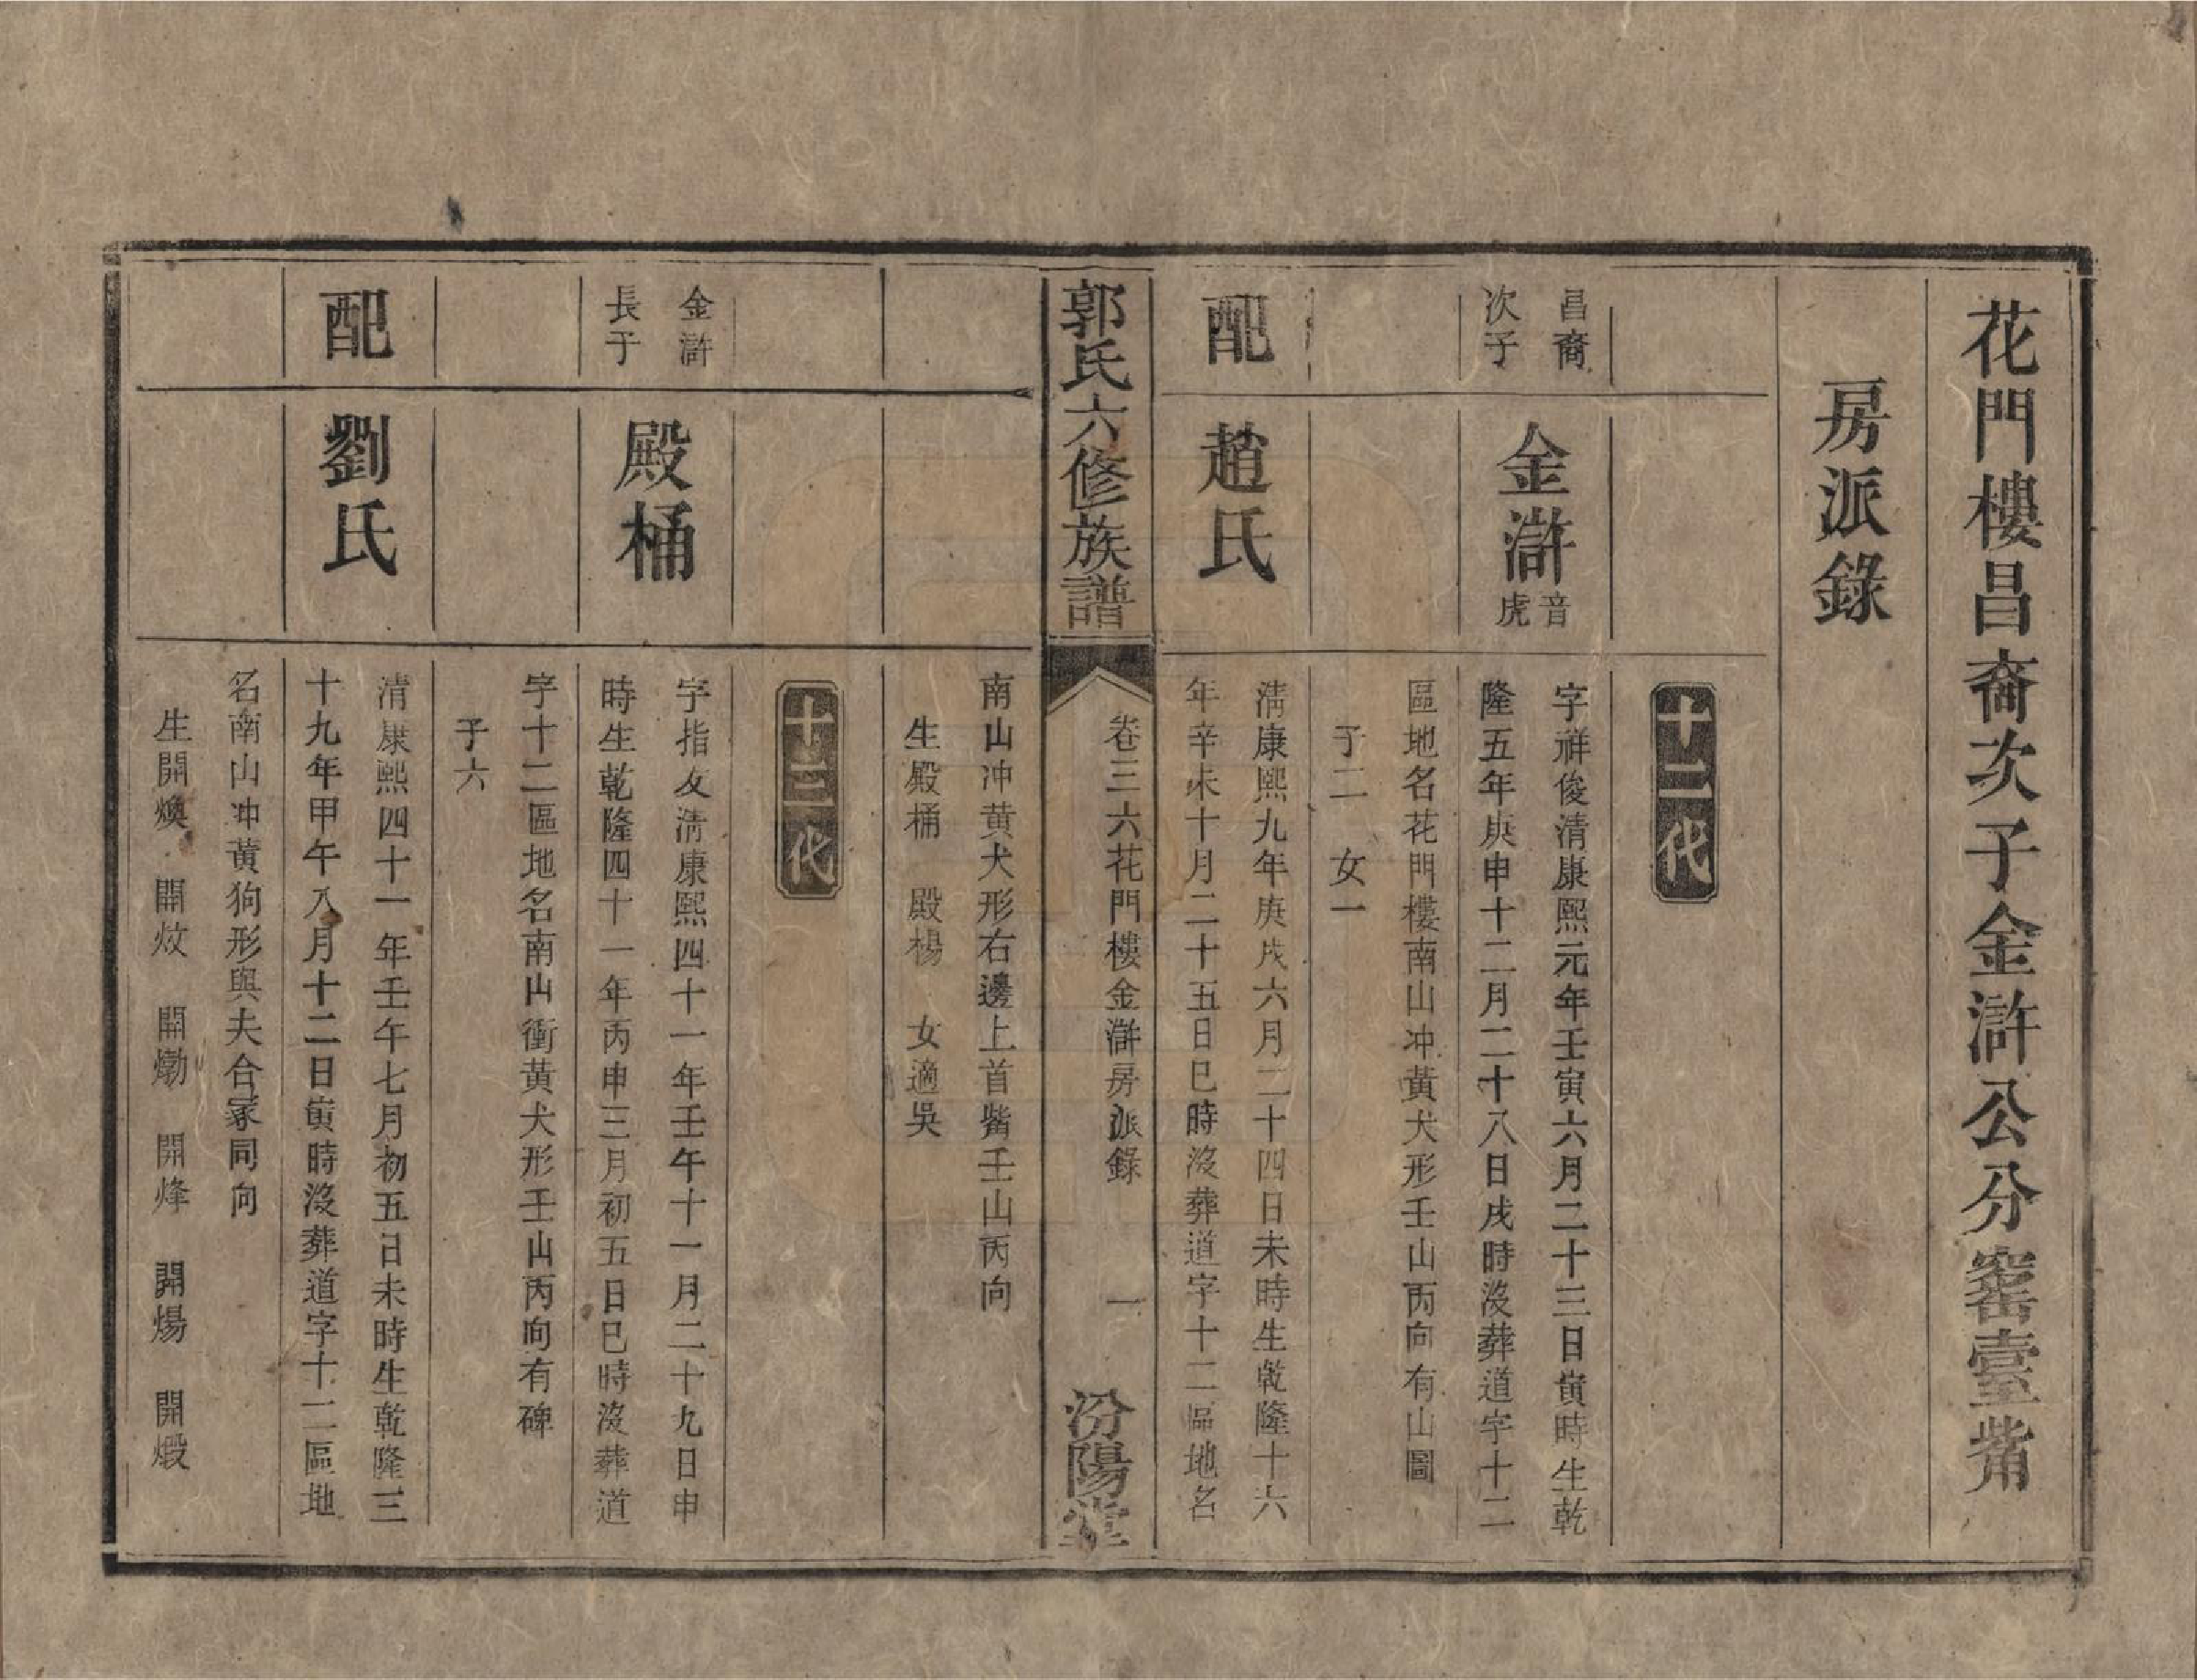 花門樓昌裔次子金滸公分窰臺觜
房派錄
十二代
昌裔
次子
金滸
音
虎
字祥俊清康熙元年壬寅六月二十三日寅時生乾
隆五年庚申十二月二十八日戌時沒葬道字十二
區地名花門樓南山冲黃犬形壬山丙向有山圖
子二 女一
配
趙氏
清康熙九年庚戌六月二十四日未時生乾隆十六
年辛未十月二十五日巳時沒葬道字十二區地名
郭氏六修族譜
卷三六花門樓金滸房派錄
一
汾陽堂
南山冲黃犬形右邊上首觜壬山丙向
生殿桶 殿楊 女適吳
十三代
金滸
長子
殿桶
字指友清康熙四十一年壬午十一月二十九日申
時生乾隆四十一年丙申三月初五日巳時沒葬道
字十二區地名南山衝黃犬形壬山丙向有碑
子六
配
劉氏
清康熙四十一年壬午七月初五日未時生乾隆三
十九年甲午八月十二日寅時沒葬道字十二區地
名南山冲黃狗形與夫合冢同向
生開煥 開炆 開 開烽 開煬 開煅